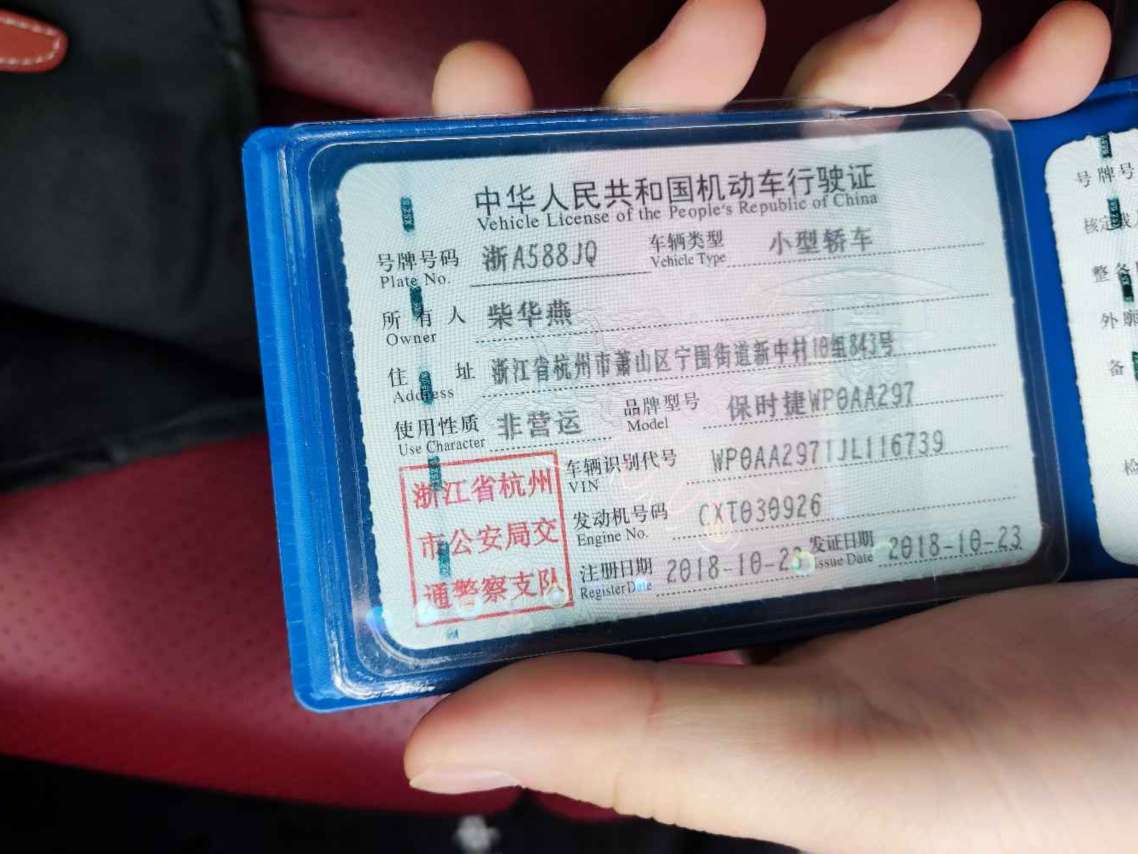 中华人民共和国机动车行驶证
Vehicle License of the People's Republic of China
号牌号码 浙A588JQ 车辆类型 小型轿车
Plate No. Vehicle Type
所有人 柴华燕
Owner
住址 浙江省杭州市萧山区宁围街道新中村10组843号
Address
使用性质 非营运 品牌型号 保时捷WP0AA297
Use Character Model
浙江省杭州
市公安局交
通警察支队
车辆识别代号 WP0AA2971JL116739
VIN
发动机号码 CXT030926
Engine No.
注册日期 2018-10-23 发证日期 2018-10-23
Register Date Issue Date
号牌号
核定载
整备
外廓
备
检